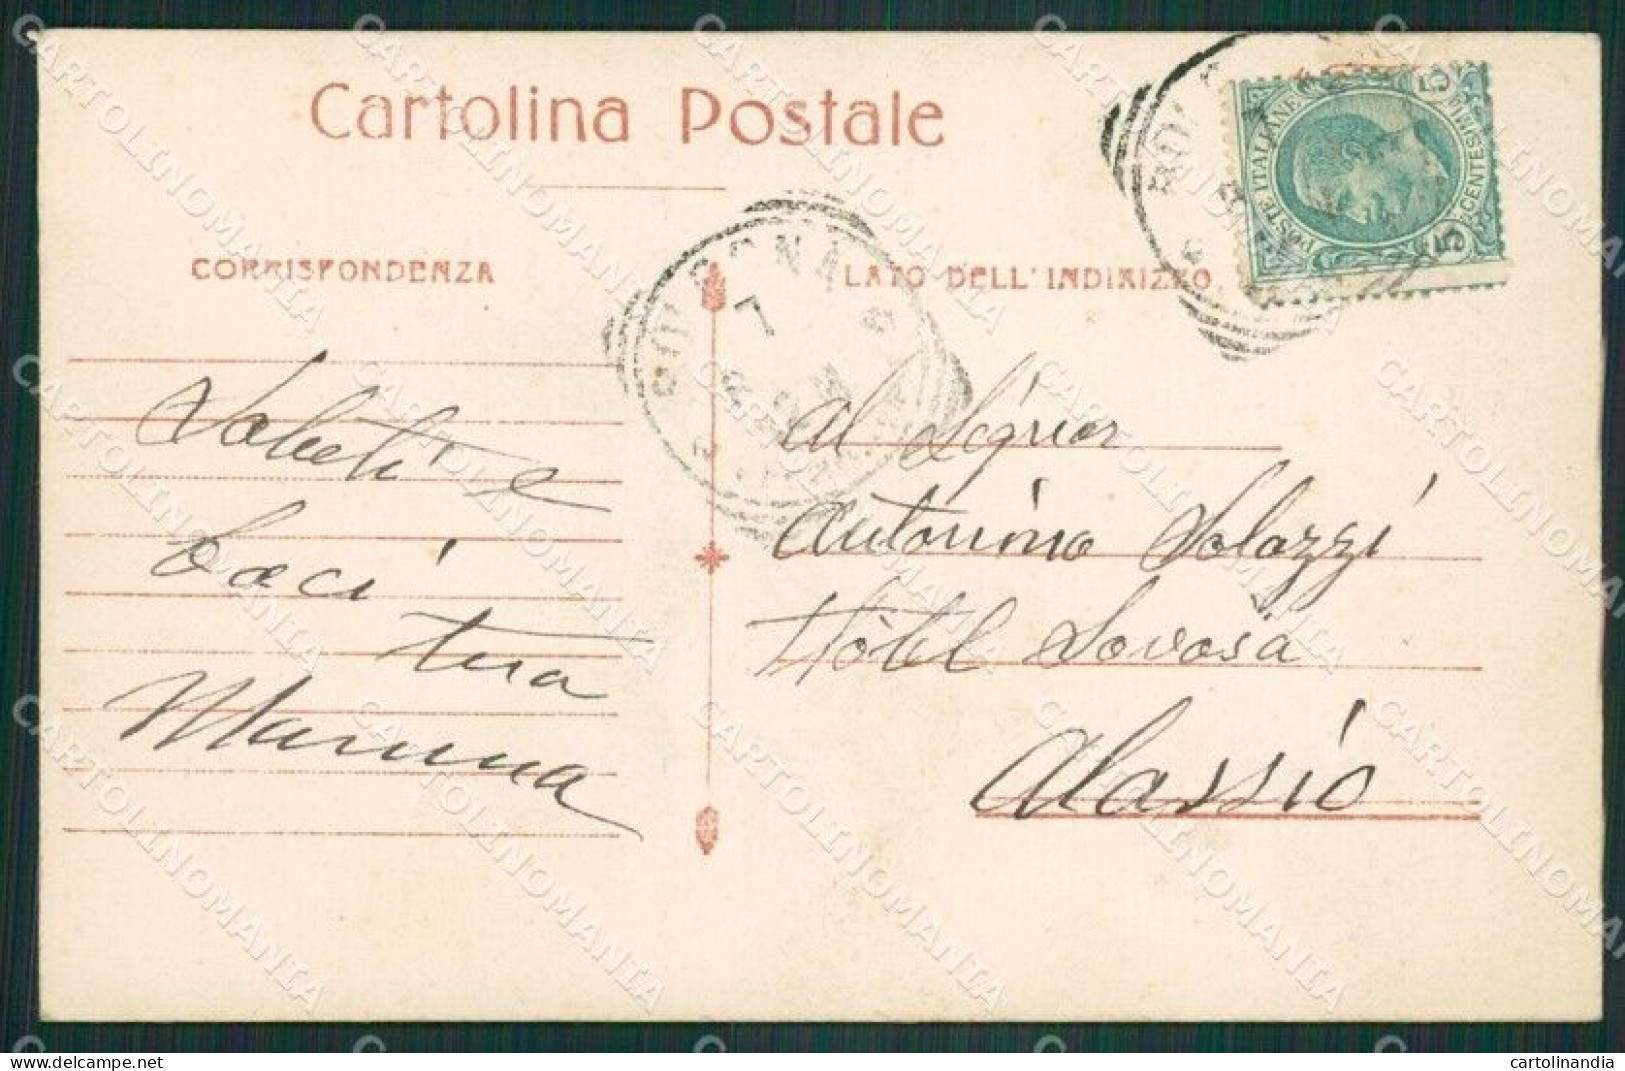 Cartolina Postale
CORRISPONDENZA
LATO DELL'INDIRIZZO
POSTE ITALIANE
5 CENTESIMI 5
Saluti e
baci
tua
Mamma
Al Signor
Antonino Solazzi
Hôtel Savoia
Alassio
CARTOLINOMANIA
cartolinandia